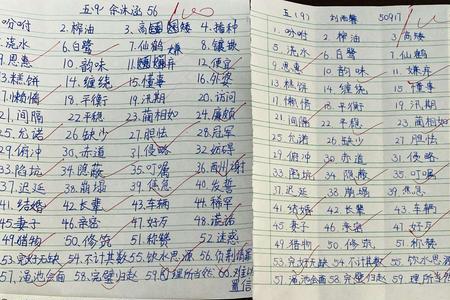 五.9 余沐涵 56
1.吩咐 2.榨油 3.高 矮 4.播种
5.浇水 6.白鹭 7.仙鹤 嫌 8.镶嵌
9.恩惠 10.韵味 11. 弃 12.便宜
13.糕饼 14.缠绕 15.懂事 16.外婆
17.懒惰 18.平衡 19.汛期 20.访问
21.间隔 22.平稳 23.蔺相如 24.廉颇
25.允诺 26.缺少 27.胆怯 28.冠军
29.俯冲 30.赤道 31.侵略 32.妨碍
33.陷坑 34.隐蔽 35.叮嘱
37.迟延 38.崩塌 39.信息 40.发誓
41.结婚 42.长辈 43.车辆 44.稀罕
45.妻子 46.亲密 47.好歹 48.
49.猎物 50.修筑 51.称赞 52.迷惑
53.完好无缺 54.不计其数 55.饮水思源 56.负荆请罪
57.渑池会面 58.完璧归赵 59.理所当然 60.难以置信
五(9) 50917
1.吩咐 2.榨油 3.高矮
5.浇水 6.白鹭 7.仙鹤
9.恩惠 10.韵味 11.嫌弃
13.糕饼 14.缠绕 15.懂事
17.懒惰 18.平衡 19.汛期
21.间隔 22.平稳 23.蔺相如
25.允诺 26.缺少 27.胆怯
29.俯冲 30.赤道 31.侵略
33.陷坑 34.隐蔽 35.叮嘱
37.迟延 38.崩塌 39.信息
41.结婚 42.长辈 43.车辆
45.妻子 46.亲密 47.好歹
49.猎物 50.修筑 51.称赞
53.完好无缺 54.不计其数 55.饮水思源
57.渑池会面 58.完璧归赵 59.理所当然